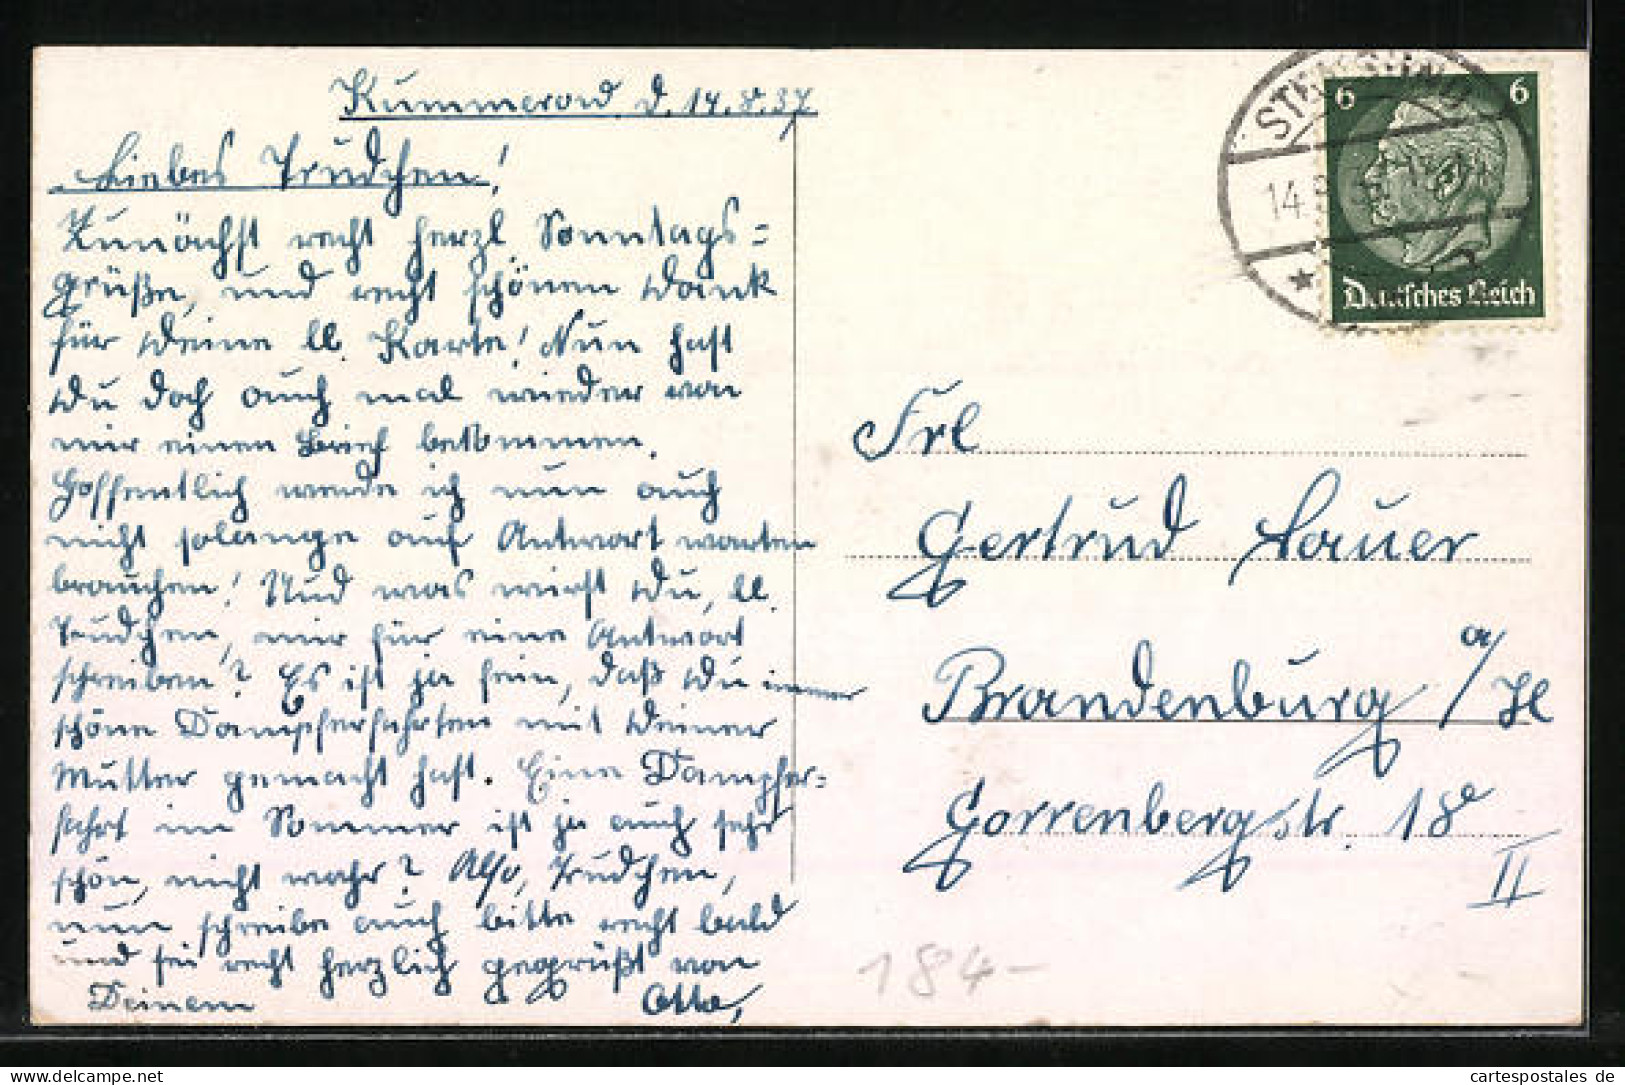 Kummerow, d. 14.8.37
Liebes Trudchen!
Zunächst recht herzl. Sonntags=
grüße, und recht schönen Dank
für Deine lb. Karte! Nun hast
Du doch auch mal wieder von
mir einen Brief bekommen.
Hoffentlich werde ich nun auch
nicht solange auf Antwort warten
brauchen! Und was wirst Du, lb.
Trudchen, mir für eine Antwort
schreiben? Es ist ja fein, daß Du immer
schöne Dampferfahrten mit Deiner
Mutter gemacht hast. Eine Dampfer=
fahrt im Sommer ist ja auch sehr
schön, nicht wahr? Also, Trudchen,
nun schreibe auch bitte recht bald
und sei recht herzlich gegrüßt von
Deinem Otto,
STRALSUND
14.8.
6 6
Deutsches Reich
Frl
Gertrud Lauer
Brandenburg a/H
Gorrenbergstr. 18a
II
184-
www.delcampe.net
cartespostales de